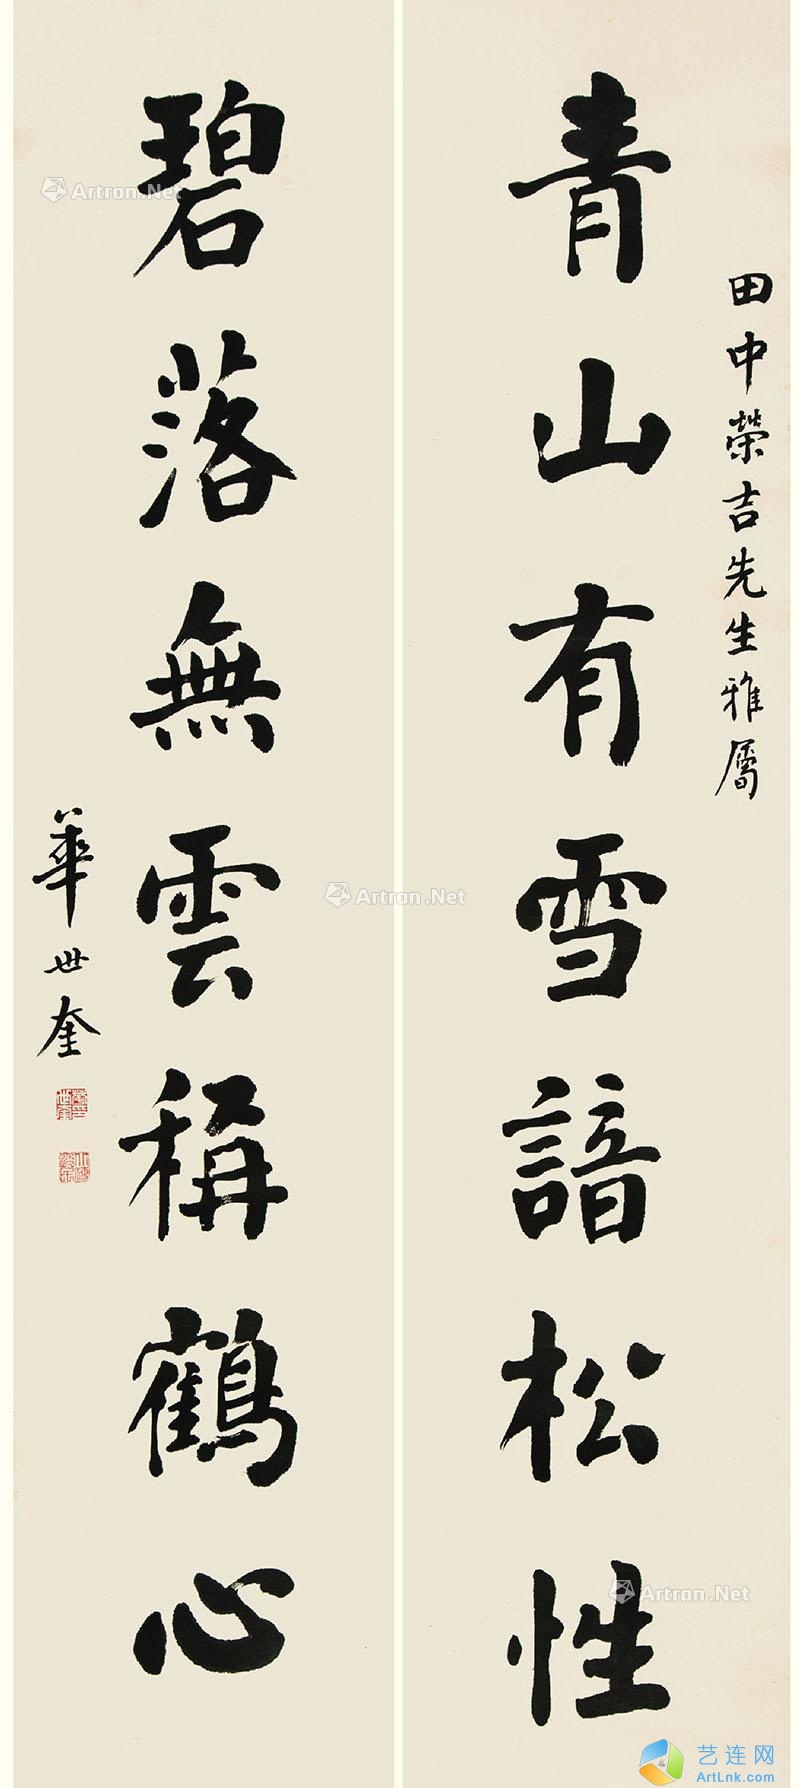 田中榮吉先生雅屬
青山有雪諳松性
碧落無雲稱鶴心
華世奎
Artron.Net
Artron.Net
Artron.Net
艺连网
ArtLnk.com